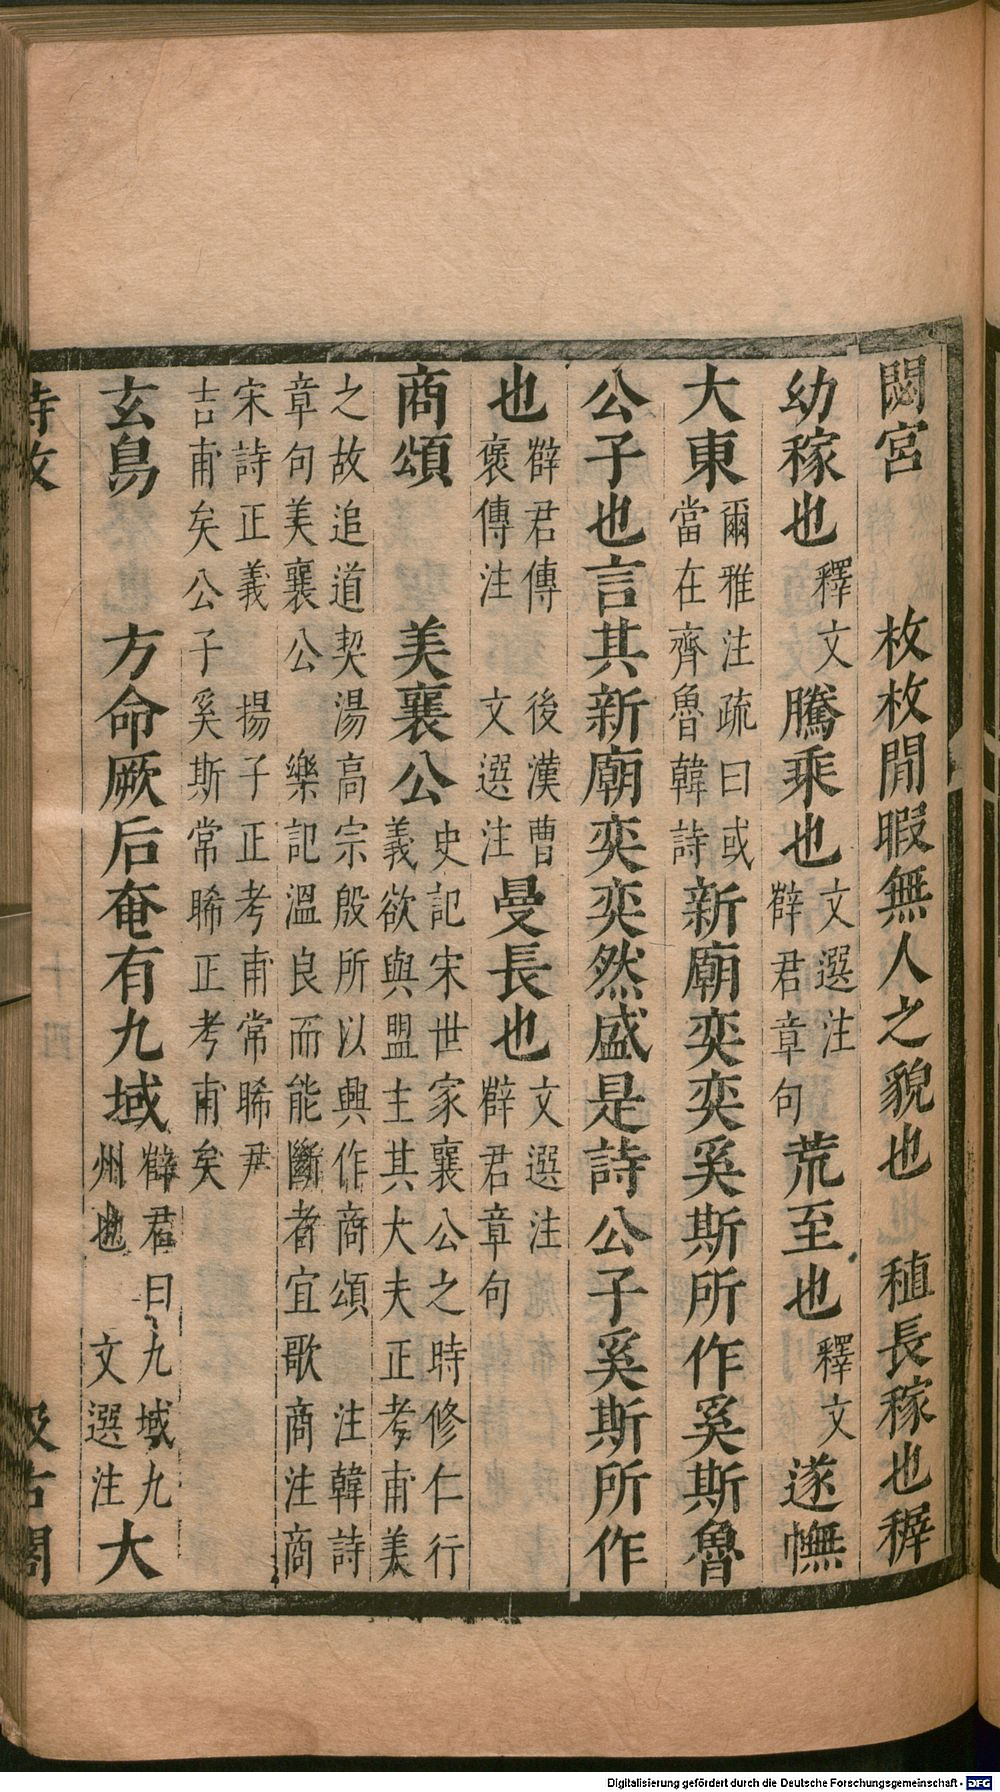 閟宮　枚枚閒暇無人之貌也　稙長稼也稺
幼稼也釋文　騰乘也文選注薛君章句荒至也釋文　遂幠
大東爾雅注疏曰或當在齊魯韓詩新廟奕奕奚斯所作奚斯魯
公子也言其新廟奕奕然盛是詩公子奚斯所作
也薛君傳　後漢曹褒傳注　文選注曼長也文選注薛君章句
商頌　美襄公史記宋世家襄公之時修仁行義欲與盟主其大夫正考甫美
之故追道契湯高宗殷所以興作商頌　注韓詩
章句美襄公　樂記溫良而能斷者宜歌商注商
宋詩正義　揚子正考甫常睎尹
吉甫矣公子奚斯常睎正考甫矣
玄鳥　方命厥后奄有九域薛君曰九域九州也　文選注大
詩攷　汲古閣
Digitalisierung gefördert durch die Deutsche Forschungsgemeinschaft - DFG